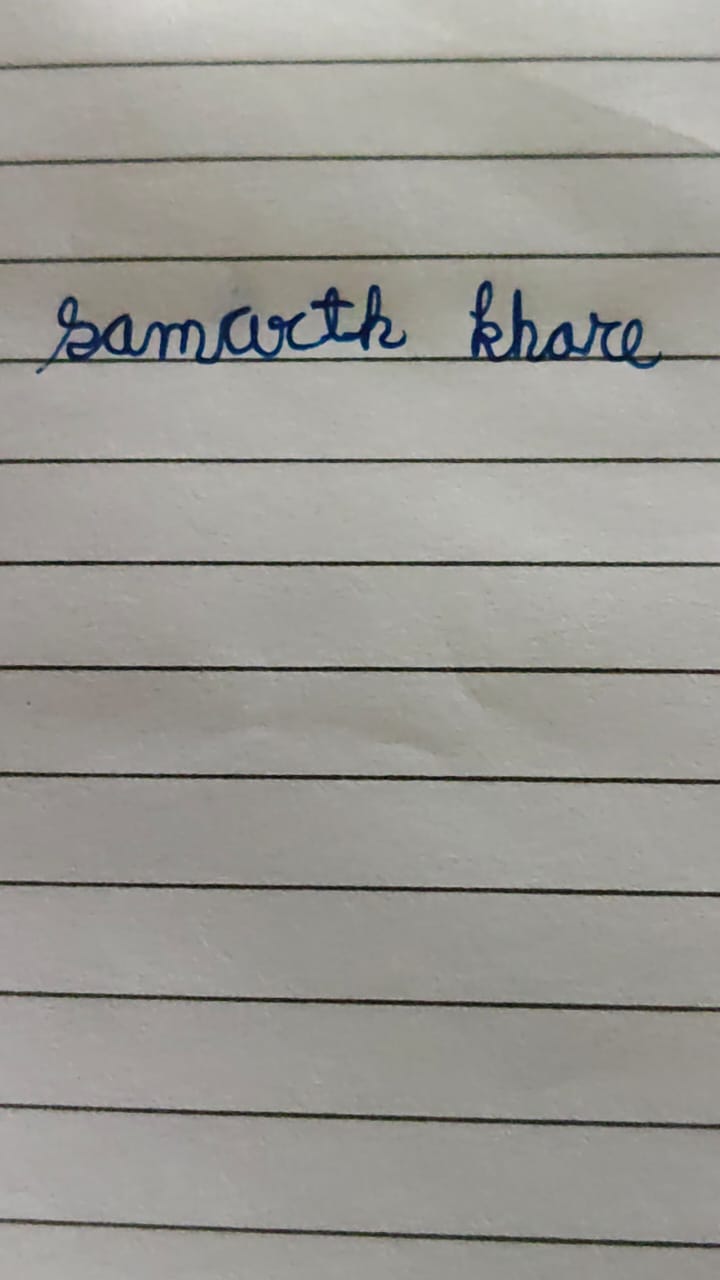 samarth khare